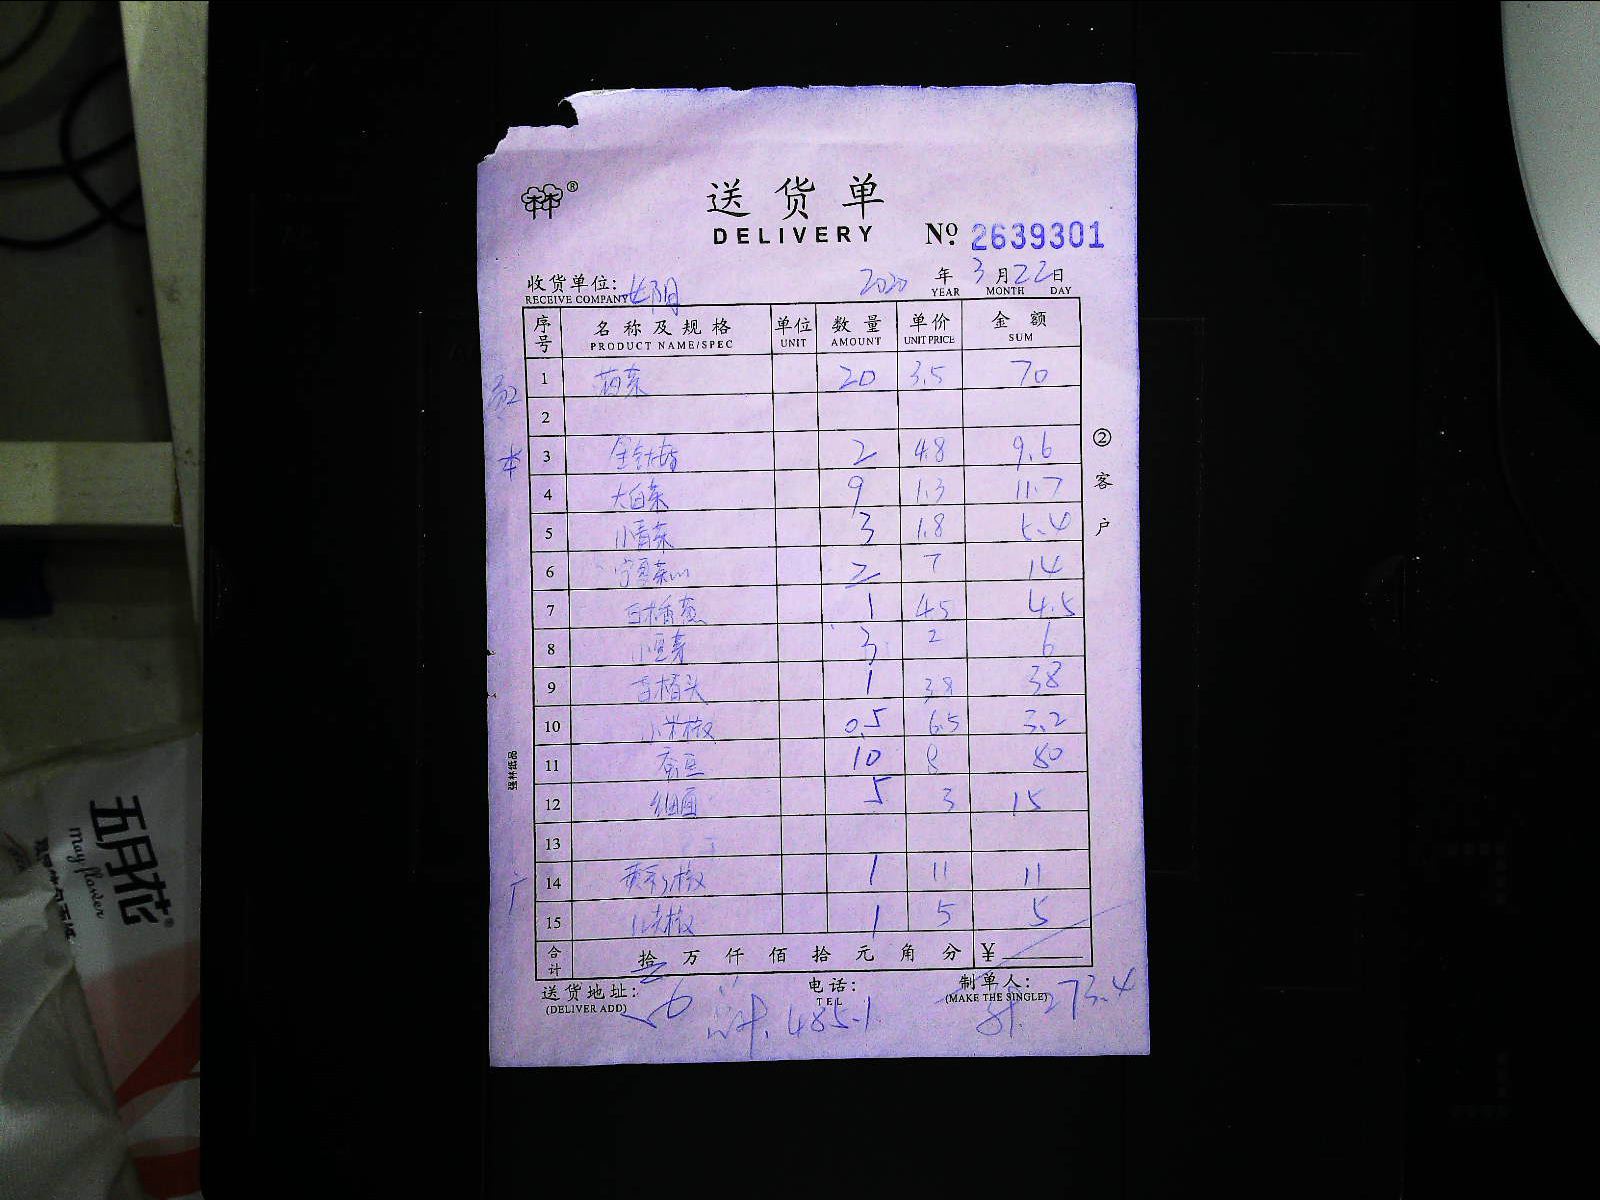 ®
送货单
DELIVERY No. 2639301
收货单位: 2020 年 3 月 22 日
RECEIVE COMPANY YEAR MONTH DAY
序号 名称及规格 单位 数量 单价 金额
PRODUCT NAME/SPEC UNIT AMOUNT UNIT PRICE SUM
1 20 3.5 70
2
3 金针菇 2 4.8 9.6
4 大白菜 9 1.3 11.7
5 小青菜 3 1.8 5.4
6 2 7 14
7 1 4.5 4.5
8 小豆芽 3 2 6
9 1 38 38
10 小米椒 0.5 6.5 3.2
11 蚕豆 10 8 80
12 细面 5 3 15
13
14 黄彩椒 1 11 11
15 1 5 5
合计 拾 万 仟 佰 拾 元 角 分 ¥
送货地址: 电话: 制单人:
(DELIVER ADD) TEL (MAKE THE SINGLE)
56 总计. 485.1 计. 273.4
② 客户
强林纸品
五月花®
mayflower